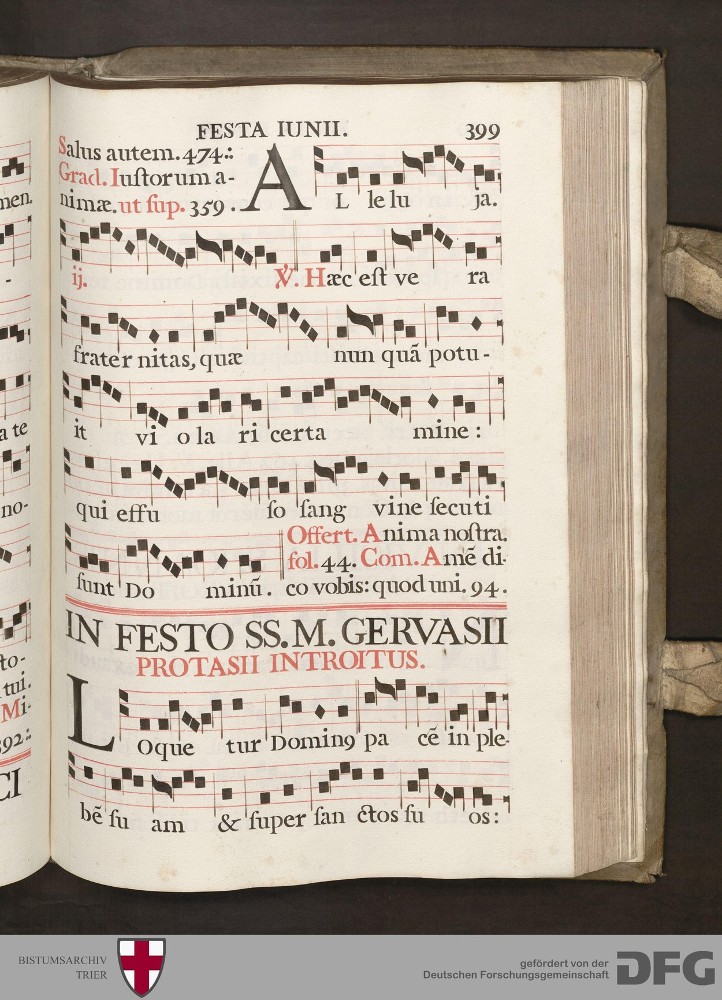 FESTA IUNII. 399
Salus autem. 474.:
Grad. Iustorum a-
nimæ. ut sup. 359. A L le lu ja.
ij. ℣. Hæc est ve ra
frater nitas, quæ nun quã potu-
it vi o la ri certa mine:
qui effu so sang vine secuti
sunt Do minũ.
Offert. Anima nostra.
fol. 44. Com. Amẽ di-
co vobis: quod uni. 94.
IN FESTO SS. M. GERVASII
PROTASII INTROITUS.
LOque tur Dominꝰ pa cẽ in ple-
bẽ su am & super san ctos su os:
men.
-
a te
no-
to-
tui.
Mi-
392.:
CI
BISTUMSARCHIV
TRIER
gefördert von der
Deutschen Forschungsgemeinschaft
DFG